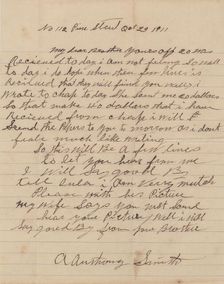 No 112 Pine Street Oct 29 1911
my dear Brother yours off 20 was
Recieved to day i am not feling So well
to day i do hope when these few lines is
recieved that they will find you well i
Wrote to Chap to day She Sent me 20 dollars
So that make 40 dollars that i have
Recieved from Chap i will
Send the to you to morrow as i dont
feale much like writing
So this will Be a few lines
to let you hear from me
I Will Say good By
tell Lula i am very much
Please with his Picture
my wife Says you must Send
her your Picture Well i will
Say good By from your Brother
A Anthony Smith